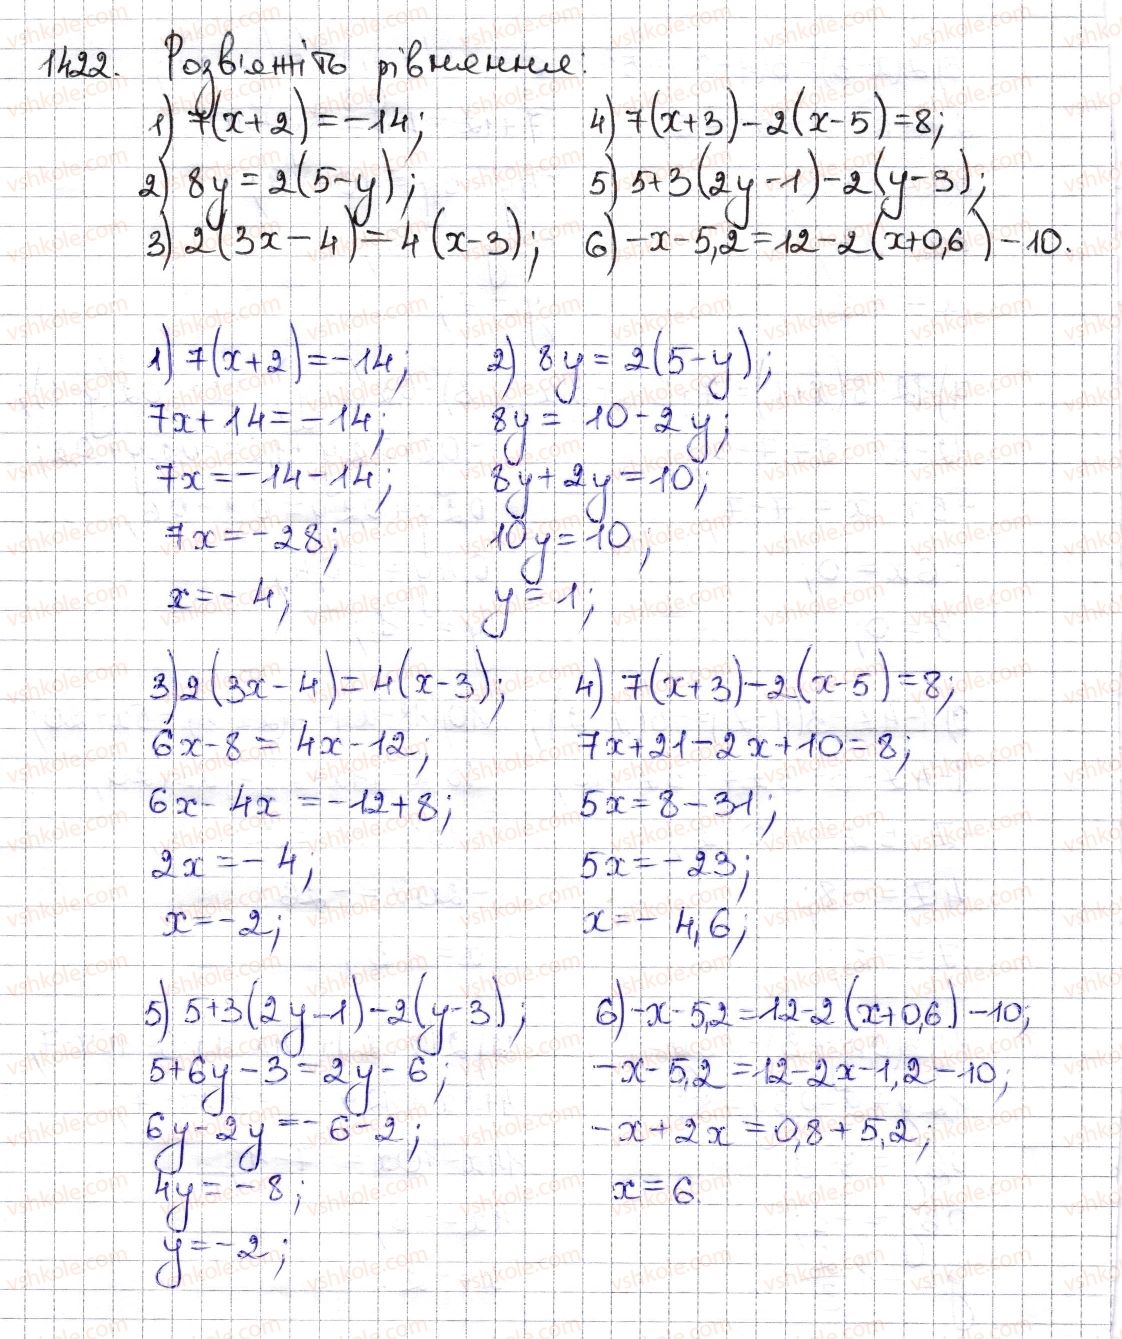 1422. Розв'яжіть рівняння:
1) 7(x+2)=-14; 4) 7(x+3)-2(x-5)=8;
2) 8y=2(5-y); 5) 5+3(2y-1)-2(y-3);
3) 2(3x-4)=4(x-3); 6) -x-5,2=12-2(x+0,6)-10.
1) 7(x+2)=-14; 2) 8y=2(5-y);
7x+14=-14; 8y=10-2y;
7x=-14-14; 8y+2y=10;
7x=-28; 10y=10;
x=-4; y=1;
3) 2(3x-4)=4(x-3); 4) 7(x+3)-2(x-5)=8;
6x-8=4x-12; 7x+21-2x+10=8;
6x-4x=-12+8; 5x=8-31;
2x=-4; 5x=-23;
x=-2; x=-4,6;
5) 5+3(2y-1)-2(y-3); 6) -x-5,2=12-2(x+0,6)-10;
5+6y-3=2y-6; -x-5,2=12-2x-1,2-10;
6y-2y=-6-2; -x+2x=0,8+5,2;
4y=-8; x=6.
y=-2;